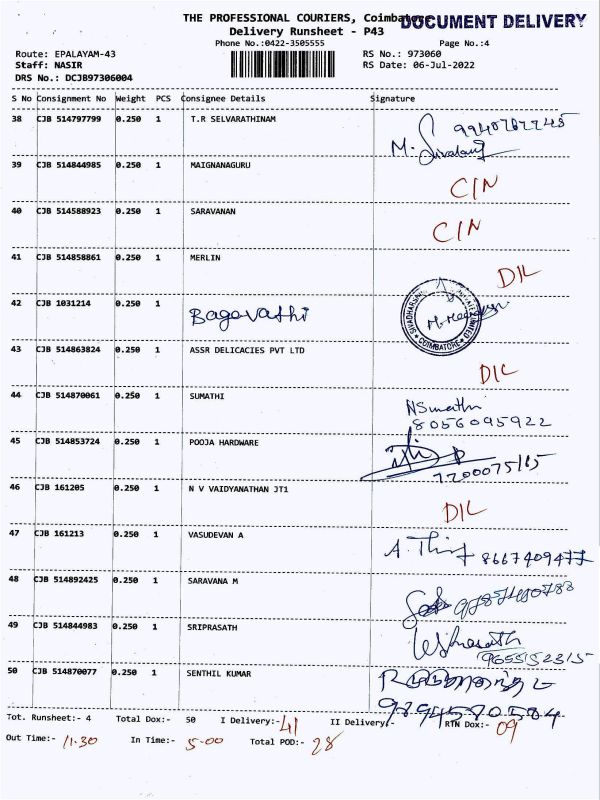 THE PROFESSIONAL COURIERS, Coimbatore
DOCUMENT DELIVERY
Delivery Runsheet - P43
Phone No.:0422-3505555 Page No.:4
Route: EPALAYAM-43 RS No.: 973060
Staff: NASIR RS Date: 06-Jul-2022
DRS No.: DCJB97306004
S No Consignment No Weight PCS Consignee Details Signature
38 CJB 514797799 0.250 1 T.R SELVARATHINAM
39 CJB 514844985 0.250 1 MAIGNANAGURU C/N
40 CJB 514588923 0.250 1 SARAVANAN C/N
41 CJB 514858861 0.250 1 MERLIN D/L
42 CJB 1031214 0.250 1 Bagavathi
COIMBATORE
43 CJB 514863824 0.250 1 ASSR DELICACIES PVT LTD D/L
44 CJB 514870061 0.250 1 SUMATHI NSumathi
8056095922
45 CJB 514853724 0.250 1 POOJA HARDWARE
46 CJB 161205 0.250 1 N V VAIDYANATHAN JT1 D/L
47 CJB 161213 0.250 1 VASUDEVAN A 8667409477
48 CJB 514892425 0.250 1 SARAVANA M
49 CJB 514844983 0.250 1 SRIPRASATH
9655152315
50 CJB 514870077 0.250 1 SENTHIL KUMAR
9894580584
Tot. Runsheet:- 4 Total Dox:- 50 I Delivery:- 41 II Delivery:- RTN Dox:- 09
Out Time:- 11-30 In Time:- 5-00 Total POD:- 28